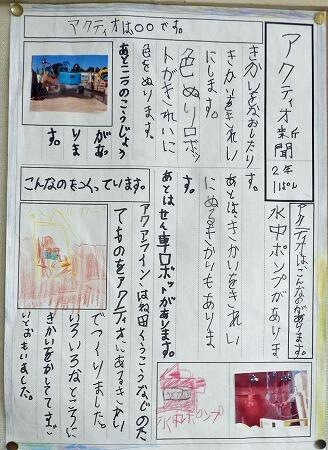 アクティオは〇〇です。
アクティオ新聞
2年
1ぱん
きかいをなおしたり
きかいをきれい
にします。
色ぬりロボッ
トがきれいに
色をぬります。
あと二つのこうじょう
があ
りま
す。
アクティオはこんなのがあります。
水中ポンプがありま
あとはきかいをきれい
にぬるきかいもありま
す。
あとはせん車ロボットがあります。
こんなのをつくっています。
アクアラインはね田くうこうなどのた
てものをアクティオにあるきかい
でつくりました。
いろいろなところに
きかいをかしててすご
いとおもいました。
水中ポンプ